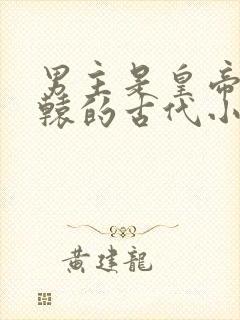 男主是皇帝
辕的古代小
黄建龍